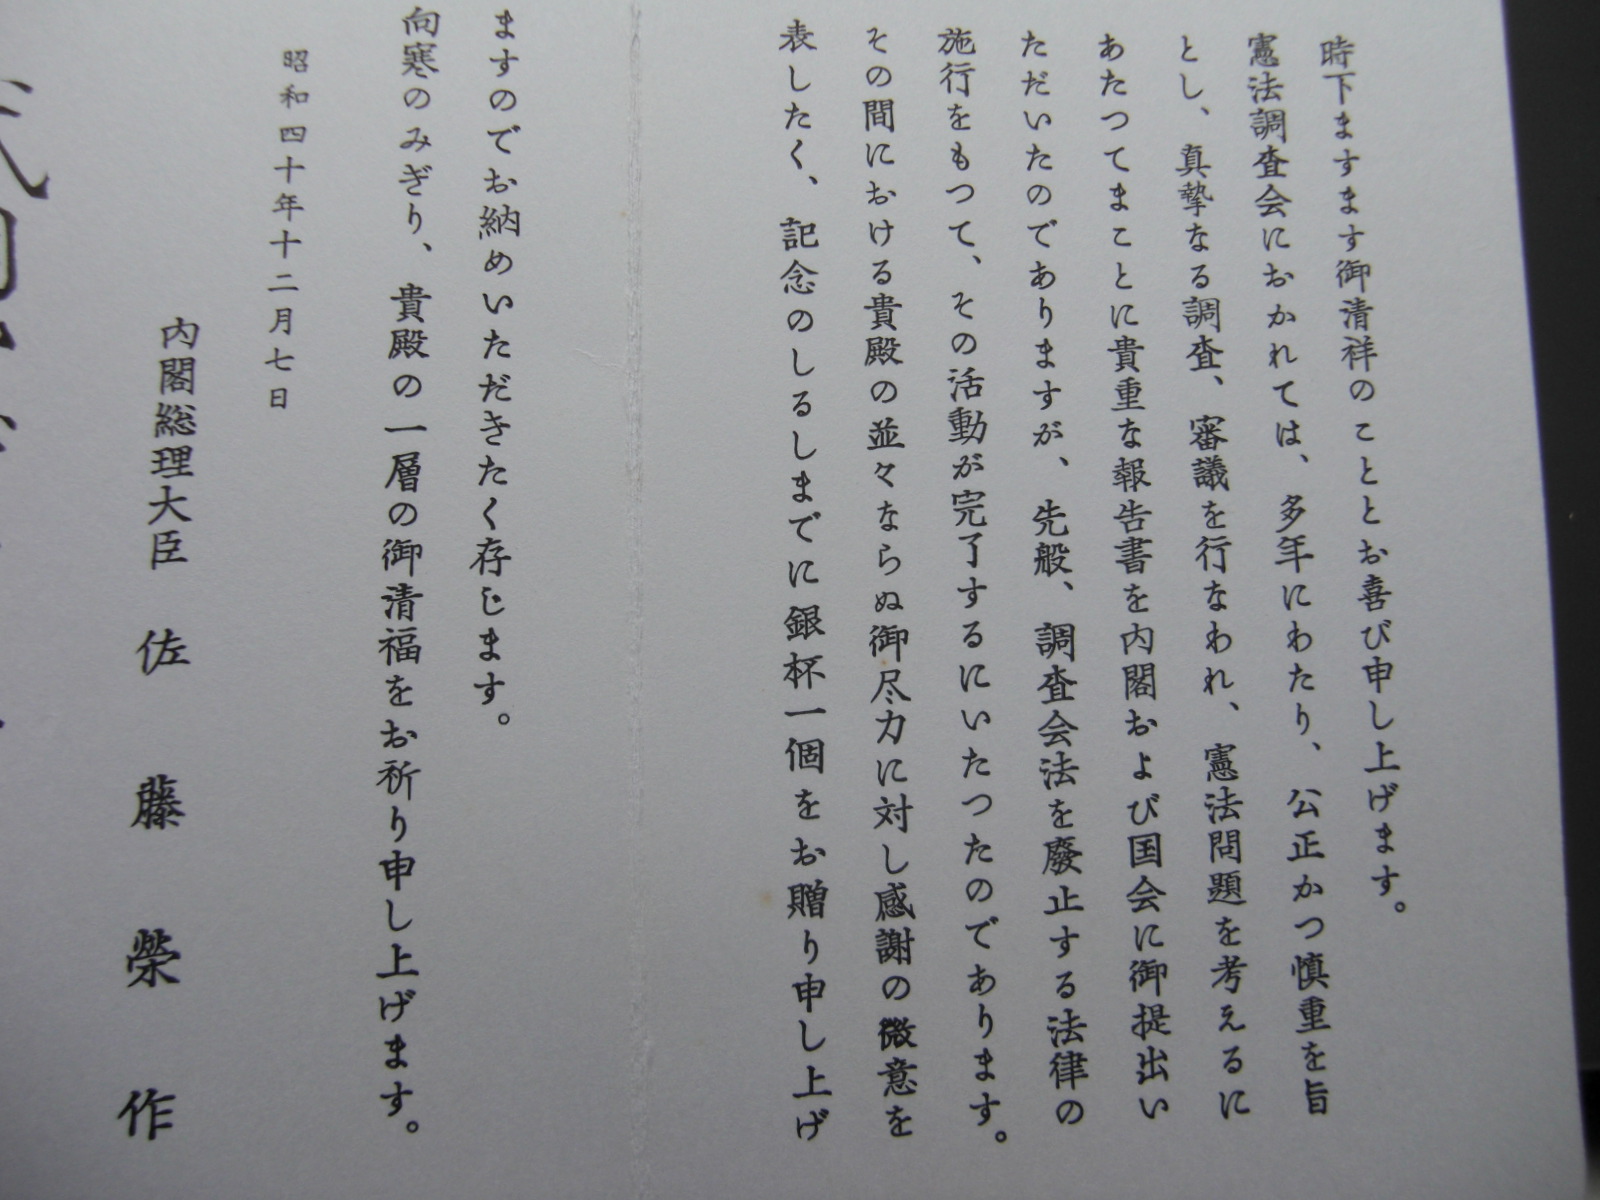 時下ますます御清祥のこととお喜び申し上げます。
憲法調査会におかれては、多年にわたり、公正かつ慎重を旨
とし、真摯なる調査、審議を行なわれ、憲法問題を考えるに
あたつてまことに貴重な報告書を内閣および国会に御提出い
ただいたのでありますが、先般、調査会法を廃止する法律の
施行をもつて、その活動が完了するにいたつたのであります。
その間における貴殿の並々ならぬ御尽力に対し感謝の微意を
表したく、記念のしるしまでに銀杯一個をお贈り申し上げ
ますのでお納めいただきたく存じます。
向寒のみぎり、貴殿の一層の御清福をお祈り申し上げます。
昭和四十年十二月七日
内閣総理大臣 佐藤榮作